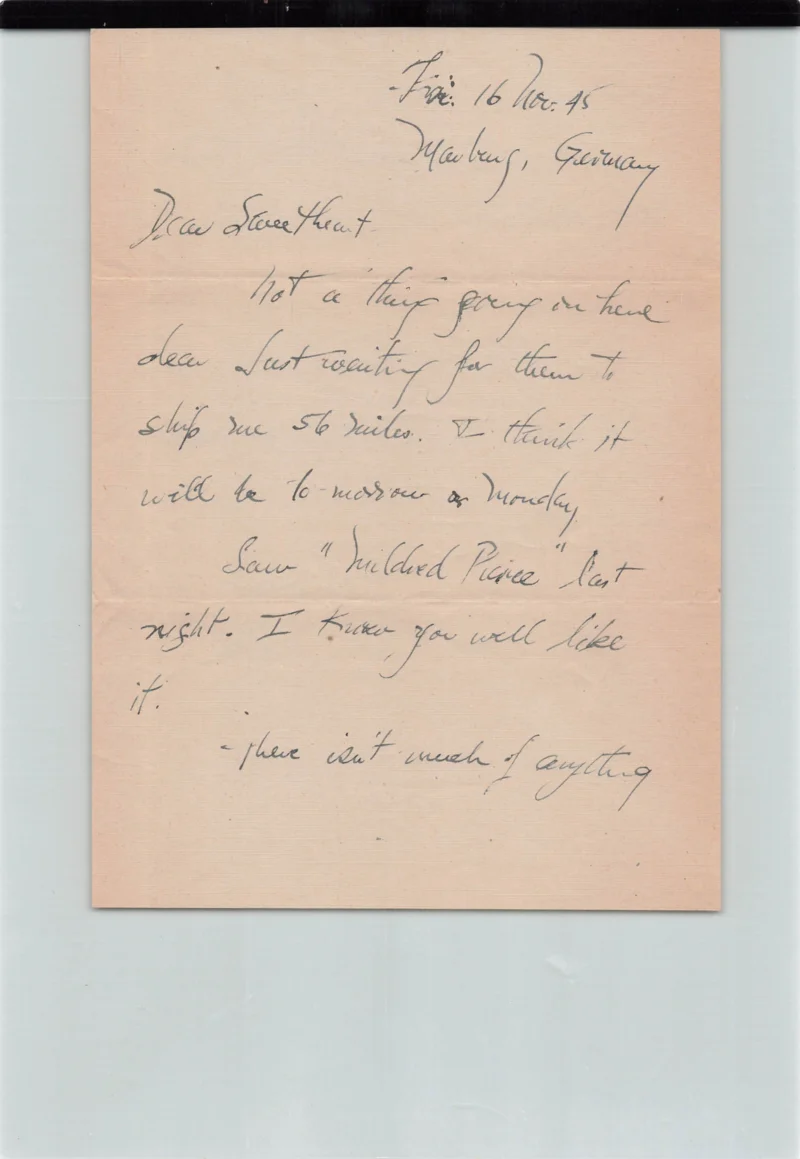 Fri. 16 Nov. 45
Marburg, Germany
Dear Sweetheart
Not a thing going on here
dear Just waiting for them to
ship me 56 miles. I think it
will be to-morrow or Monday
Saw "Mildred Pierce" last
night. I know you will like
it.
There isn't much of anything